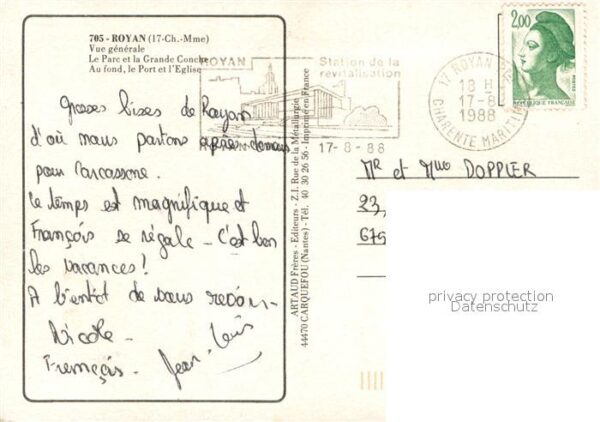 705 - ROYAN (17-Ch.-Mme)
Vue générale
Le Parc et la Grande Conche
Au fond, le Port et l'Eglise
ROYAN
Station de la
revitalisation
17-8-88
17 ROYAN
18 H
17-8
1988
CHARENTE MARITIME
2,00
REPUBLIQUE FRANÇAISE
Grosses bises de Royan
d'où nous partons après demain
pour Carcassonne.
Le temps est magnifique et
François se régale - C'est bon
les vacances !
A bientôt de vous revoir -
Nicole -
François - Jean-Louis
ARTAUD Frères - Editeurs - Z.I. Rue de la Métallurgie
44470 CARQUEFOU (Nantes) - Tél. 40 30 26 56 - Imprimé en France
Mr et Mme DOPPLER
23,
675
privacy protection
Datenschutz